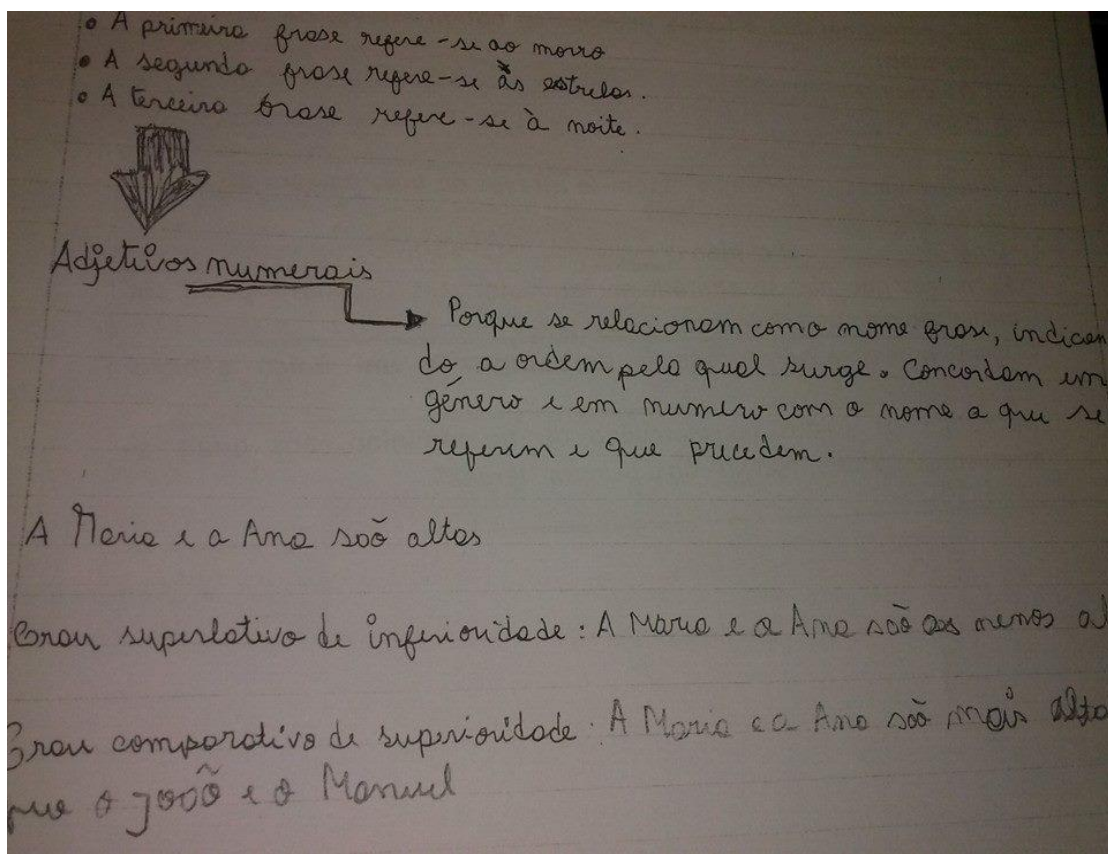 • A primeira frase refere-se ao morro
• A segunda frase refere-se às estrelas.
• A terceira frase refere-se à noite.
Adjetivos numerais
Porque se relacionam com o nome frase, indican
do a ordem pela qual surge. Concordam em
género e em numero com o nome a que se
referem e que precedem.
A Maria e a Ana são altas
Grau superlativo de inferioridade: A Maria e a Ana são as menos al
Grau comparativo de superioridade: A Maria e a Ana são mais alta
que o João e o Manuel